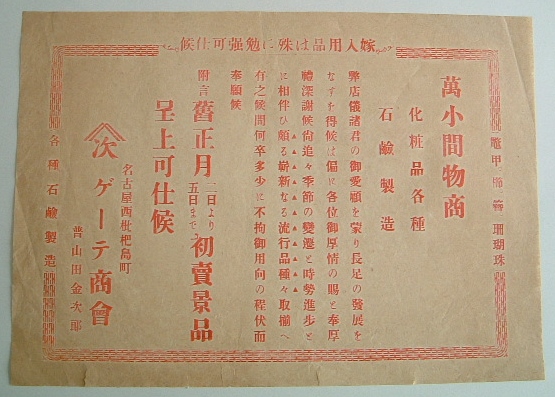 嫁入用品は殊に勉强可仕候
鼈甲櫛簪珊瑚珠
萬小間物商
化粧品各種
石鹼製造
弊店儀諸君の御愛顧を蒙り長足の發展を
なすを得候は偏に各位御厚情の賜と奉厚
禮深謝候尙追々季節の變遷と時勢進步と
に相伴ひ頗る嶄新なる流行品種々取揃へ
有之候間何卒多少に不拘御用向の程伏而
奉願候
附言 舊正月二日より五日まで初賣景品
呈上可仕候
名古屋西枇杷島町
次 ゲーテ商會
普山田金次郎
各種石鹼製造